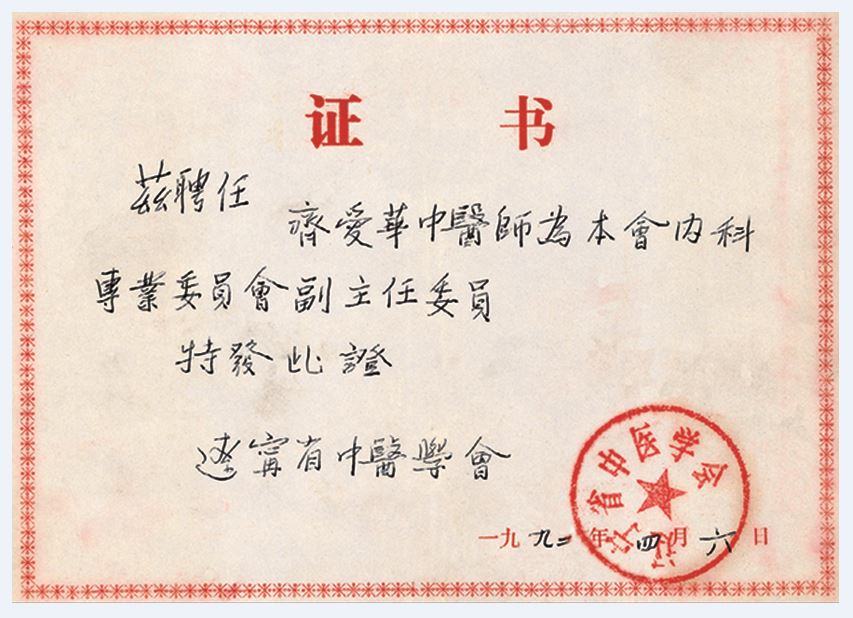 证书
茲聘任
齊愛華中醫師為本會內科
專業委員會副主任委員
特發此證
遼寧省中醫學會
一九九二年四月六日
辽宁省中医学会